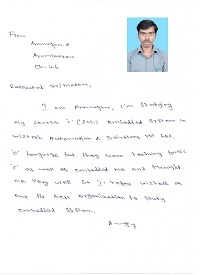 From
Arumugam.S
Arumbakkam
Ch-106.
Respected Sir/Madam,
I am Arumugam, I'm studying
my course in embedded system in
Wiztech Automation & Solutions Pvt Ltd.
'C' language but they were teaching basic
'C' as well as embedded and thought
me very well So I refer wiztech as
one the best organisation to study
embedded system.